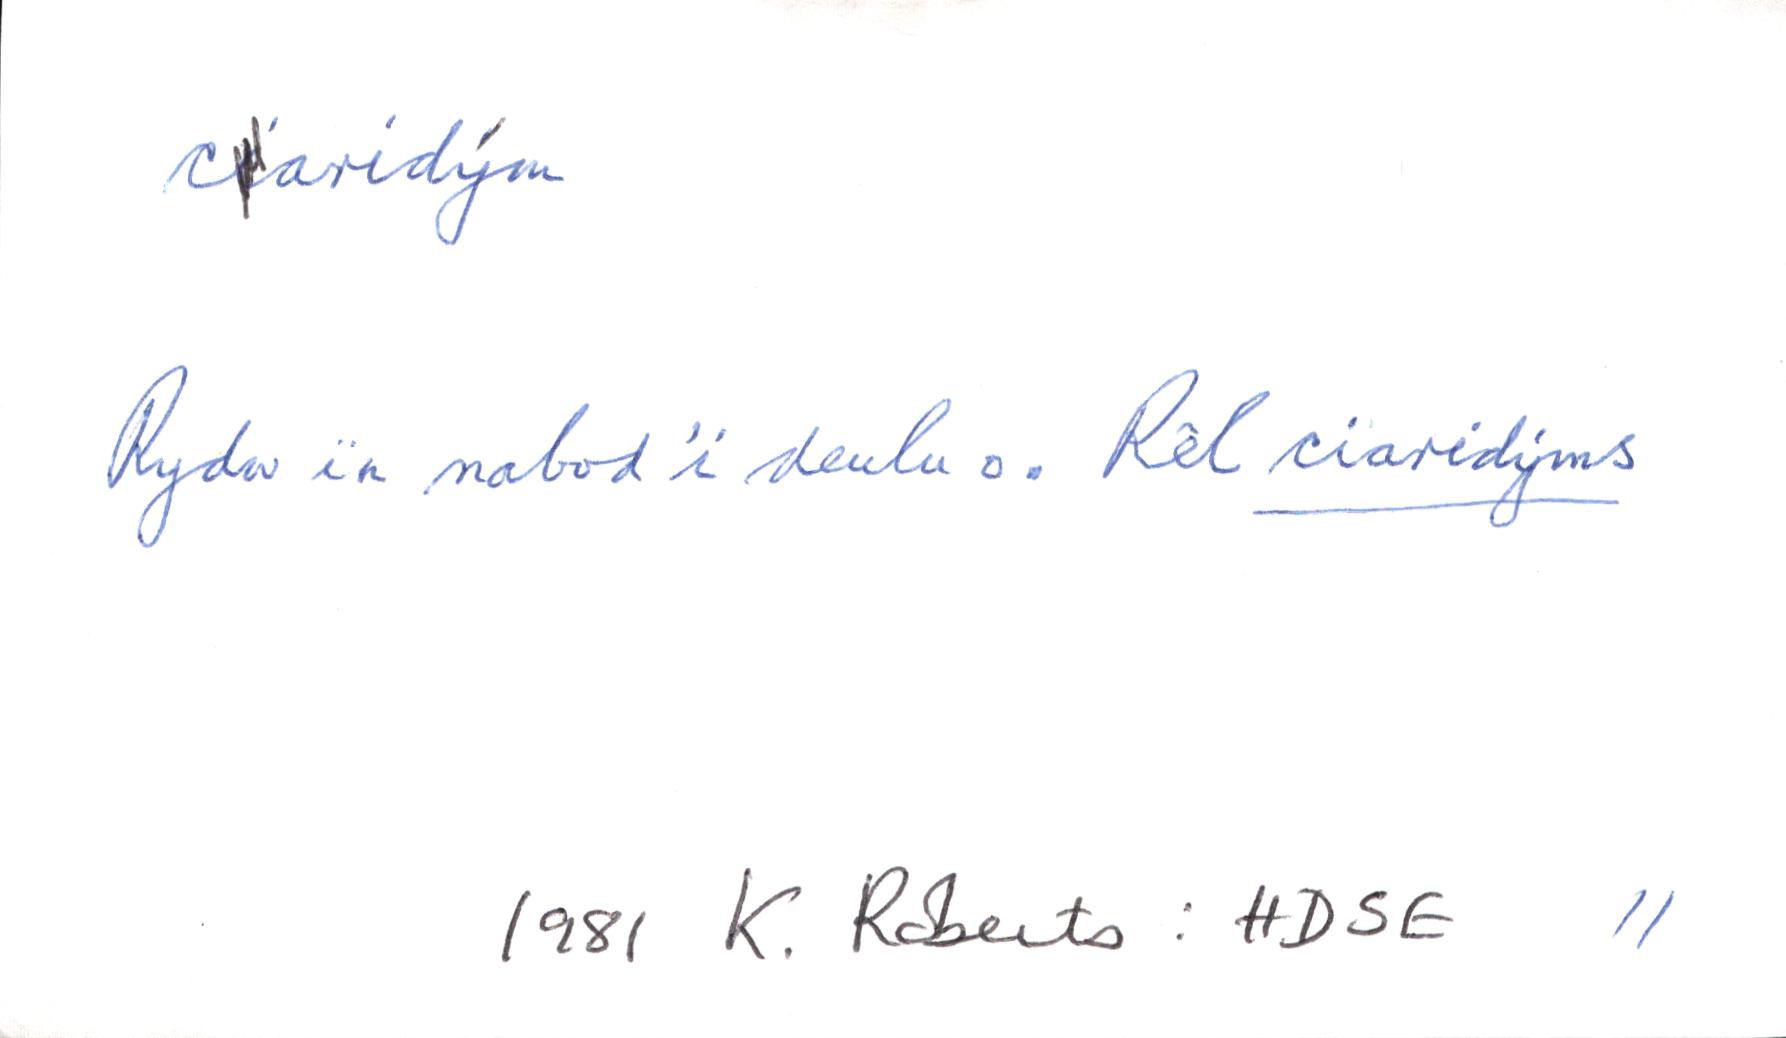 ciaridým
Rydw ïn nabod 'i deulu o. Rêl cïaridýms
1981 K. Roberts : HDSE 11